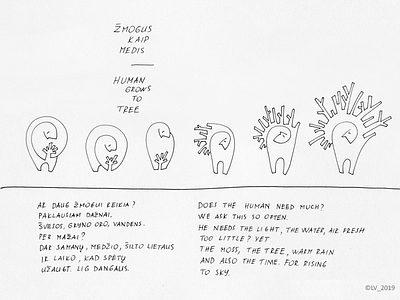 ŽMOGUS
KAIP
MEDIS
HUMAN
GROWS
TO
TREE
AR DAUG ŽMOGUI REIKIA?
PAKLAUSIAM DAŽNAI.
ŠVIESOS, GRYNO ORO, VANDENS.
PER MAŽAI?
DAR SAMANŲ, MEDŽIO, ŠILTO LIETAUS
IR LAIKO, KAD SPĖTŲ
UŽAUGT. LIG DANGAUS.
DOES THE HUMAN NEED MUCH?
WE ASK THIS SO OFTEN.
HE NEEDS THE LIGHT, THE WATER, AIR FRESH
TOO LITTLE? YET
THE MOSS, THE TREE, WARM RAIN
AND ALSO THE TIME. FOR RISING
TO SKY.
©LV_2019